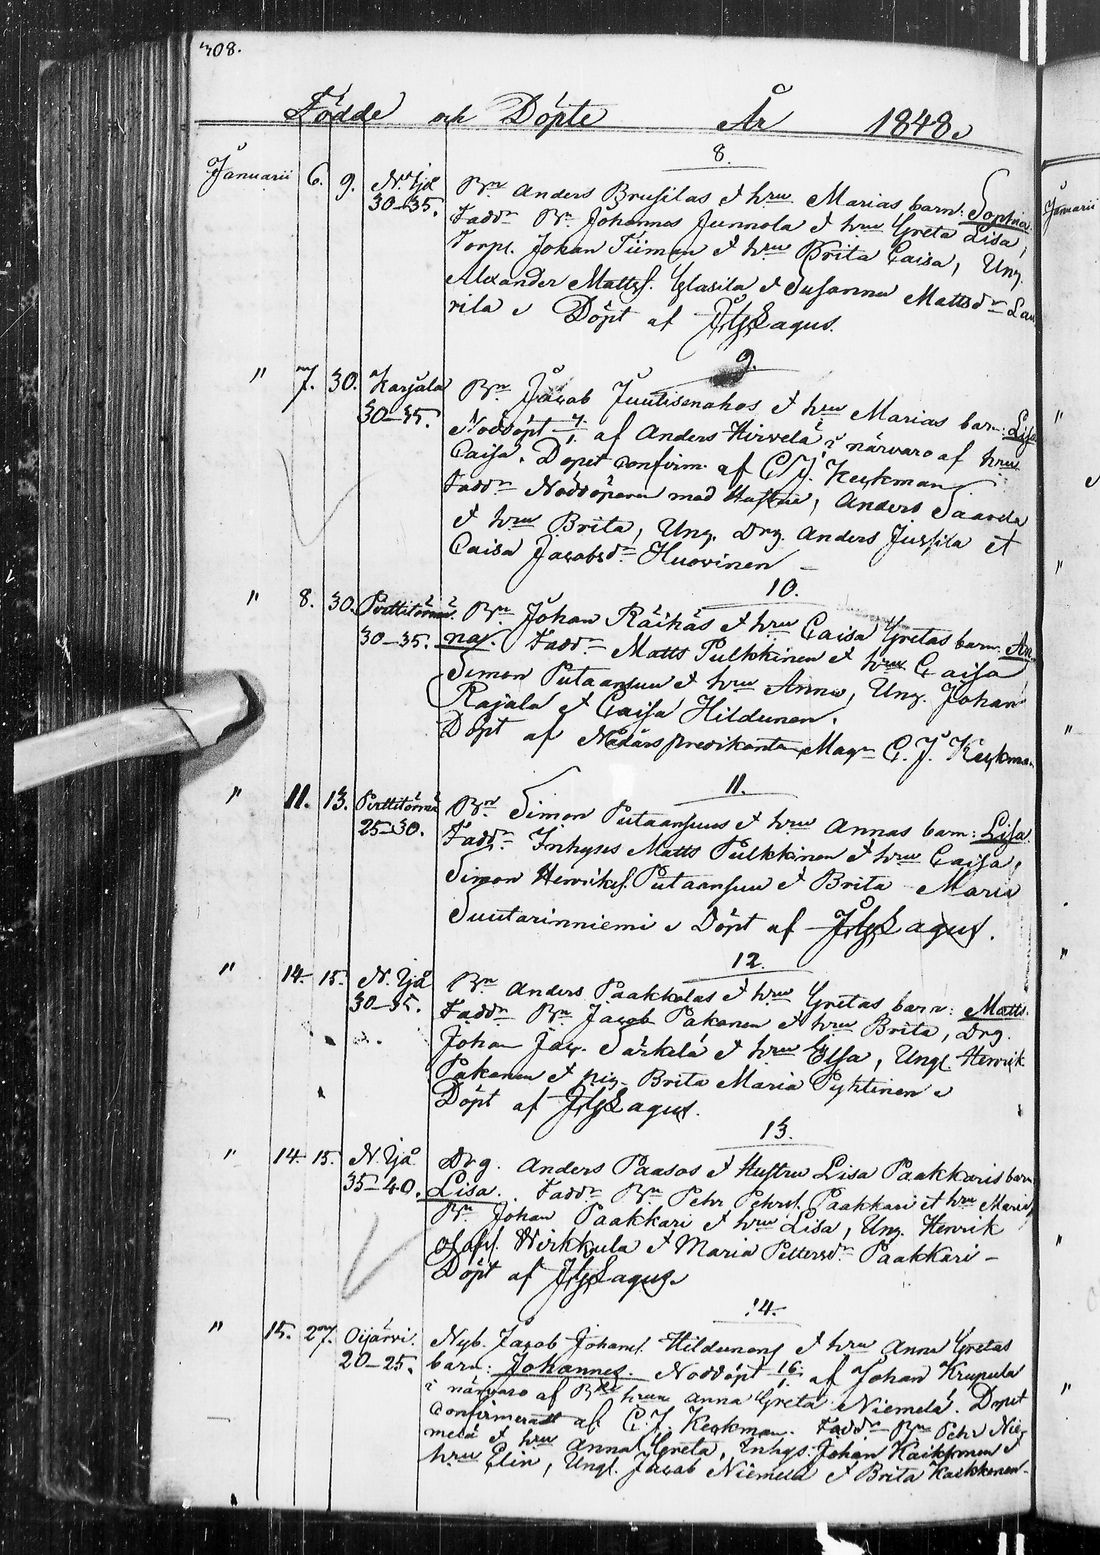 308.
Födde och Döpte År 1848.
8.
Januarii 6. 9. N. Ijå Bn Anders Brusilas & hru Marias barn: Sophia.
30–35. Faddr Bn Johannes Junnola & hru Greta Lisa,
Torp. Johan Tiiman & hru Brita Caisa, Ung.
Alexander Mattss. Ylasila & Susanna Mattsdr Lau
rila. Döpt af Lagus.
9.
" 7. 30. Karjala Bn Jacob Juutisenahos & hru Marias barn: Lisa
30–35. Nöddöpt 7/1. af Anders Hirvelä i närvaro af hru
Caisa. Dopet confirm. af C.J. Keckman
Faddr Nöddöparen med Hustru, Anders Saarela
& hru Brita, Ung. Drg. Anders Jussila et
Caisa Jacobsdr Huovinen –
10.
" 8. 30. Pirttitörmä. Bn Johan Räihäs & hru Caisa Gretas barn. An
30–35. na. Faddr Matts Pulkkinen & hru Caisa
Simon Putaansuu & hru Anna, Ung. Johan
Rajala & Caisa Hildunen.
Döpt af Nådårspredikanten Magr C. J. Keckman
11.
" 11. 13. Pirttitörmä Bn Simon Putaansuus & hru Annas barn: Lisa
25–30. Faddr Inhyses Matts Pulkkinen & hru Caisa,
Simon Henrikss. Putaansuu & Brita Maria
Suutarinniemi. Döpt af Lagus.
12.
" 14. 15. N. Ijå Bn Anders Paakkolas & hru Gretas barn: Matts.
30–35. Faddr Bn Jacob Pakanen & hru Brita, Drg.
Johan Jac. Särkelä & hru Elsa, Ungl. Henrik
Pakanen & pig. Brita Maria Pyhtinen.
Döpt af Lagus.
13.
" 14. 15. N. Ijå Drg. Anders Paasos & Hustru Lisa Paakkaris barn
35–40. Lisa. Faddr Bn Pehr Pehrss. Paakkari et hru Maria,
Bn Johan Paakkari & hru Lisa, Ung. Henrik
Olofss. Wirkkula & Maria Pettersdr Paakkari –
Döpt af Lagus.
14.
" 15. 27. Oijärvi. Nyb. Jacob Johanss. Hildunens & hru Anna Gretas
20–25. barn: Johannes. Nöddöpt 16/1. af Johan Krupula
i närvaro af hru Anna Greta Niemelä. Dopet
Confirmeradt af C. J. Keckman. Faddr Bn Pehr Nie
melä & hru Anna Greta, Inhys. Johan Kaikkonen &
hru Elin, Ungl. Jacob Niemelä & Brita Kaikkonen.
Januarii